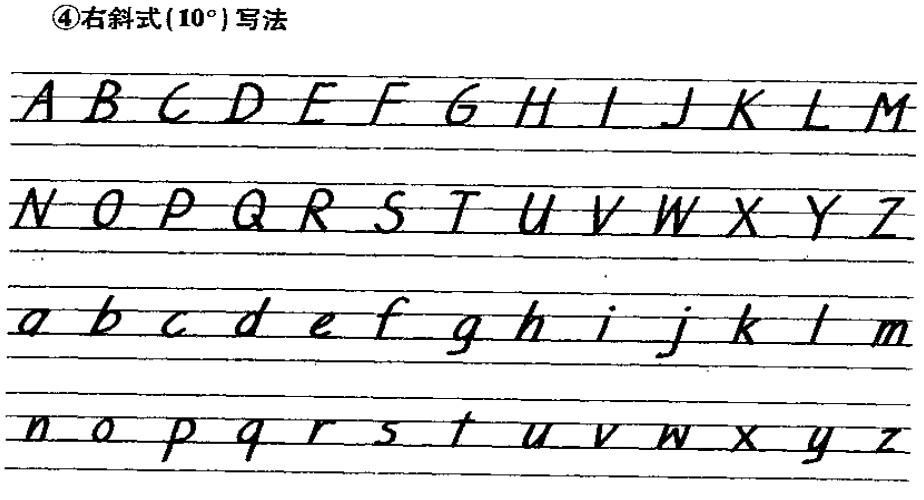 ④右斜式(10°)写法
A B C D E F G H I J K L M
N O P Q R S T U V W X Y Z
a b c d e f g h i j k l m
n o p q r s t u v w x y z